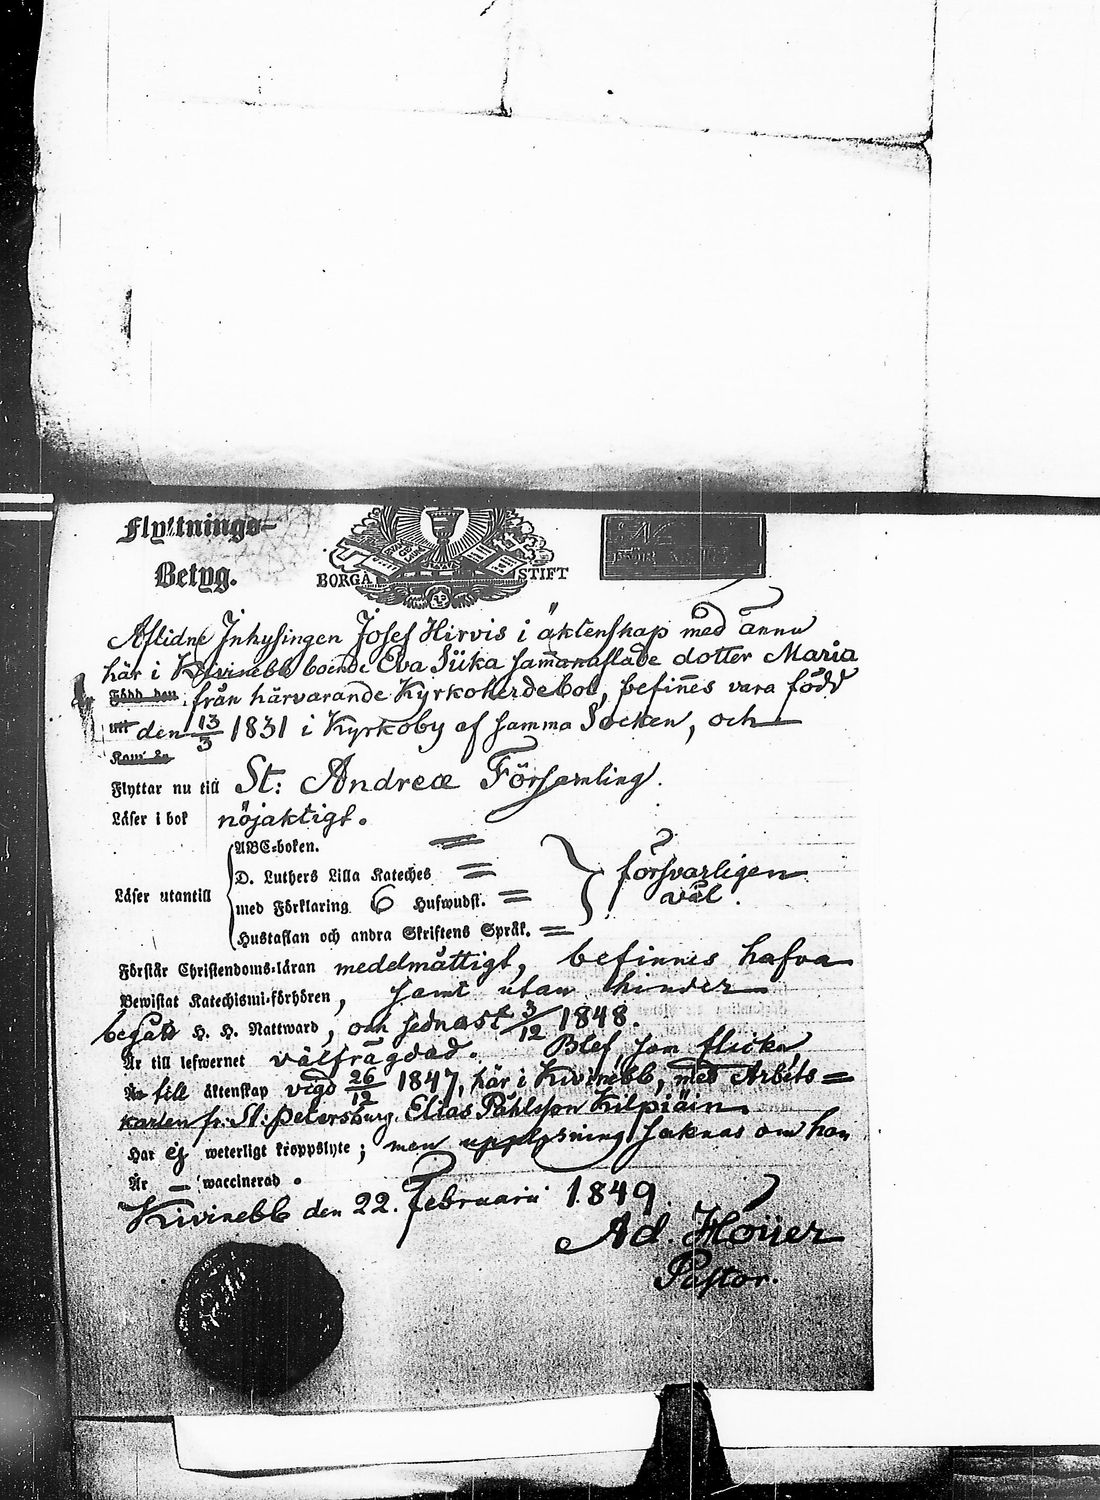 Flyttnings-
Betyg.
BORGÅ STIFT
Aflidne Inhysingen Josef Hirvis i äktenskap med ännu
här i Kivinebb boende Eva Siika sammanaflade dotter Maria
Född den från härvarande Kyrkoherdebol, befinnes vara född
den 13/3 1831 i Kyrkoby af samma Socken, och
Flyttar nu till St: Andreæ Församling.
Läser i bok nöjaktigt.
ABC-boken. =
D. Luthers Lilla Kateches =
Läser utantill försvarligen väl.
med Förklaring 6 Hufwudst. =
Hustaflan och andra Skriftens Språk. =
Förstår Christendoms-läran medelmåttigt, befinnes hafva
Bewistat Katechismi-förhören, samt utan hinder
begått H. H. Nattward, och sednast 3/12 1848.
Är till lefwernet välfrägdad. Blef som flicka
till äktenskap vigd 26/12 1847, här i Kivinebb, med Arbets=
karlen fr. St: Petersburg Elias Påhlsson Kilpiäin.
Har ej weterligt kroppslyte; men upplysning saknas om hon
Är — waccinerad.
Kivinebb den 22. Februarii 1849.
Ad. Höijer
Pastor.